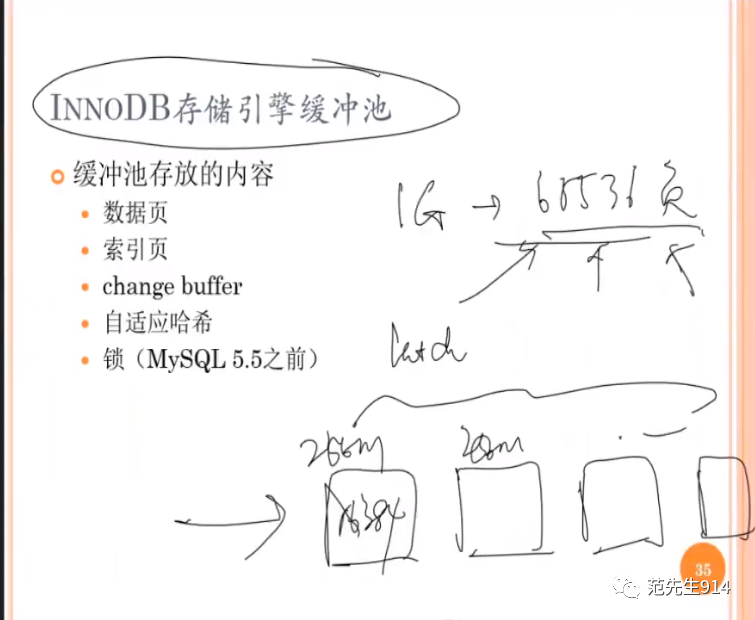 INNODB存储引擎缓冲池
缓冲池存放的内容
数据页
索引页
change buffer
自适应哈希
锁（MySQL 5.5之前）
1G → 65536 页
latch
256m
256m
16384
35
范先生914